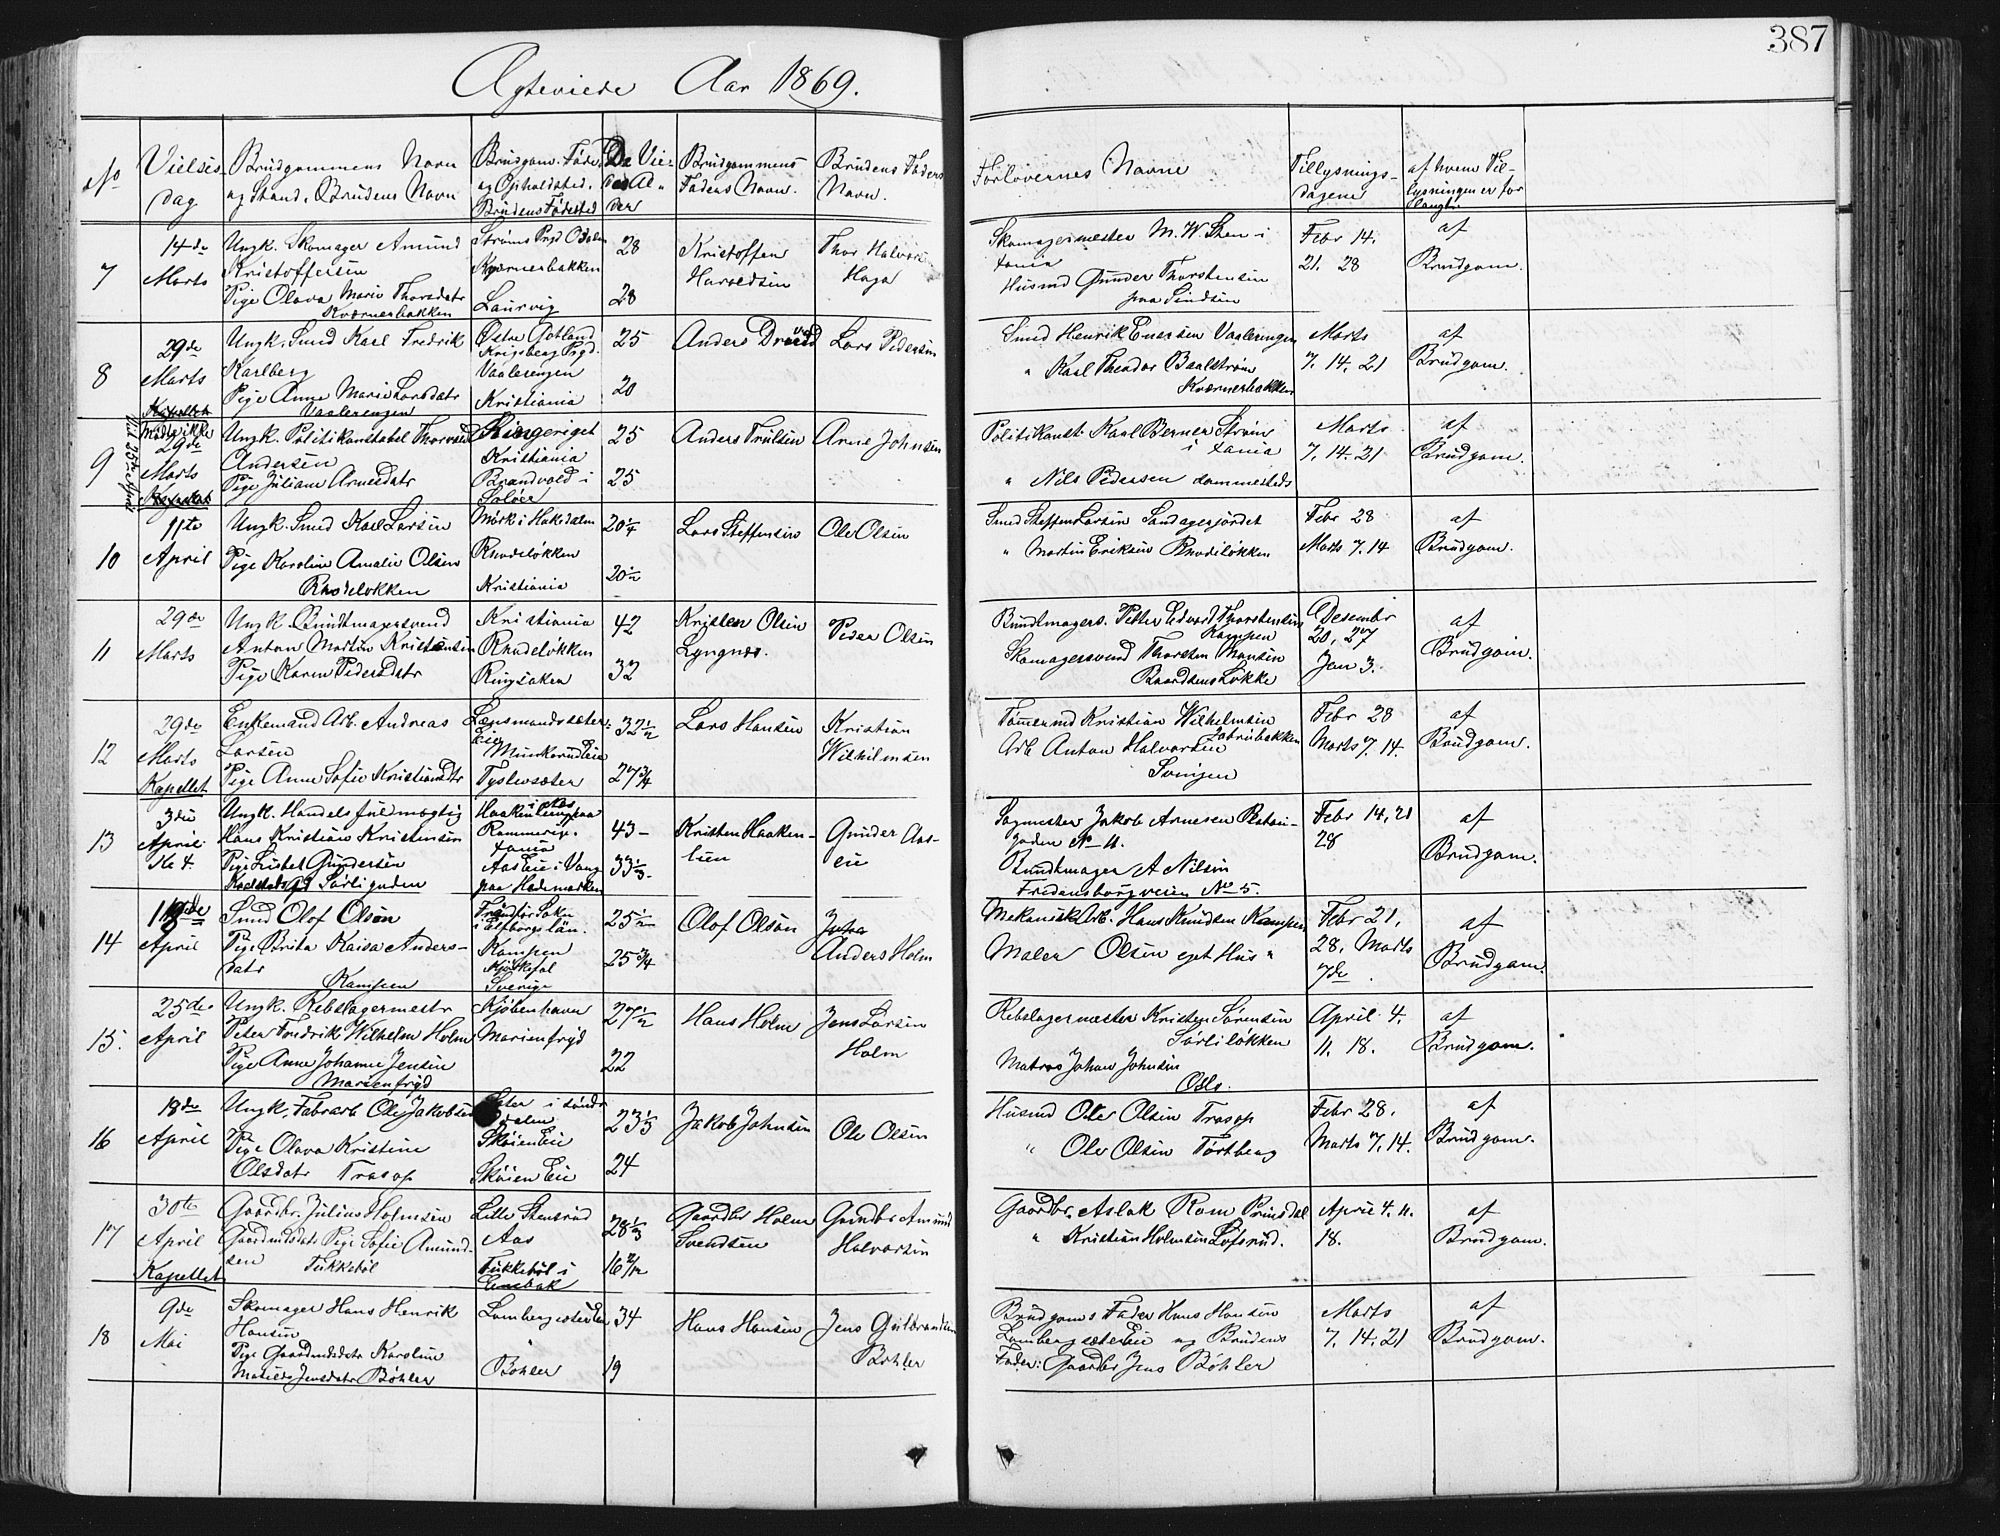 387
Ægteviede Aar 1869.
No
Vielses dag
Brudgommens Navn og Stand. Brudens Navn
Brudgom. Føde og Opholdsted. Brudens Fødested
De Viedes Alder
Brudgommens Faders Navn.
Brudens Faders Navn.
Forlovernes Navne
Tillysnings-dagene
af hvem Tillysningen er forlangt
7
14de Marts
Ungk. Skomager Amund
Kristoffersen
Pige Olava Marie Thorsdatr
Kværnerbakken
Strøms Prgd Odalen
Kværnerbakken
Laurvig
28
28
Kristoffen
Haroldsen
Thor Halvorsen
Haga
Skomagermester M. W. Sten i
Xania
Husmd Gunder Thorstensen
paa Sindsen
Febr 14.
21. 28
af
Brudgom.
8
29de
Marts
Kapellet
Ungk. Smed Karl Fredrik
Karlberg
Pige Anne Marie Larsdatr
Vaalerengen
Østre Gotland
Krigsberg Prgd.
Vaalerengen
Kristiania
25
20
Anders
Lars Pedersen
Smed Henrik Enersen Vaalerengen
" Karl Theodor Baalstrøm
Kværnerbakken
Marts
7. 14. 21
af
Brudgom.
9
Mødte ikke
29de
Marts
Kapellet
Ungk. Politikonstabel Thorvald
Andersen
Pige Juliane Arnesdatr
Ringeriget
Kristiania
Brandvold i
Soløer
25
25
Anders Trulsen
Arne Johnsen
Politikonst. Karl Berner Strøm
i Xania
" Nils Pedersen sammesteds
Marts
7. 14. 21
af
Brudgom.
10
11te
April
Ungk. Smed Karl Larsen
Pige Karoline Amalie Olsen
Rhodeløkken
Mørk i Hakedalen
Rhodeløkken
Kristiania
20¼
20½
Lars Steffensen
Ole Olsen
Smed Steffen Larsen Sandagerjordet
" Martin Eriksen Rhodeløkken
Febr 28
Marts 7. 14
af
Brudgom.
11
29de
Marts
Ungk. Bundtmagersvend
Anton Martin Kristensen
Pige Karen Pedersdatr
Kristiania
Rhodeløkken
Ringsaker
42
32
Kristen Olsen
Lyngnes.
Peder Olsen
Bundtmagers. Petter Edvard Thorstensen
Kampen
Skomagersvend Thorsten Monsen
Baardsens Løkke
Desember
20, 27
Jan 3.
af
Brudgom.
12
29de
Marts
Kapellet
Enkemand Arb. Andreas
Larsen
Pige Anne Sofie Kristiansdtr
Lensmandssæter
Eie
Munkerud Eie
Tyslevsæter
32½
27¾
Lars Hansen
Kristian
Wilhelmsen
Tømermd Kristian Wilhelmsen
Arb Anton Halvorsen
Svingen
Febr 28
Marts 7. 14.
af
Brudgom.
13
3die
April
Kl 4.
Ungk. Handelsfuldmægtig
Hans Kristian Kristensen
Pige Lisbet Gundersen
Sørligaden
Romerige.
Xania
Aas Eie i Vang
paa Hedemarken
43
33⅓
Kristen Haaken-
lien
Gunder Aas-
eie
Sagmester Jakob Arnesen Platou-
gaden No 11.
Bundtmager A Nilsen
Fredensborgveien No 5.
Febr 14, 21
28
af
Brudgom.
14
April
Smed Olof Olson
Pige Brita Kaisa Anders-
datr
Kampen
i Elfborgs län.
Kampen
Sverige
25½
25¾
Olof Olson
Anders Holm
Mekanisk Arb. Hans Knudsen Kampen
Maler Olsen eget Hus "
Febr 21,
28, Marts
7de
af
Brudgom.
15.
25de
April
Ungk. Rebslagermestr
Peter Fredrik Wilhelm Holm
Pige Anne Johanne Jensen
Marienfryd
Kjøbenhavn
Marienfryd
27½
22
Hans Holm
Jens Larsen
Holm
Rebslagermester Kristen Sørensen
Sørliløkken
Matros Johan Johnsen
Oslo.
April 4.
11. 18.
af
Brudgom.
16
18de
April
Ungk. Fabrarb Ole Jakobsen
Pige Olava Kristine
Olsdatr Trasop
Sæter i søndr
Odalen
Skøien Eie
Skøien Eie
23⅓
24
Jakob Johnsen
Ole Olsen
Husmd Ole Olsen Trasop
" Ole Olsen Tortberg
Febr 28.
Marts 7. 14.
af
Brudgom.
17
30te
April
Kapellet
Gaardbr. Julius Holmsen
Gaardmdsdatr Pige Sofie Amund-
sen Tukkebøl
Lille Stensrud
Aas
Tukkebøl i
Enebak
28⅓
16
Gaardbr Holm
Svendsen
Gaardbr Amund
Halvorsen
Gaardbr. Aslak Rom Prinsdal
" Kristian Holmsen Lofsrud.
April 4. 11.
18.
af
Brudgom.
18
9de
Mai
Skomager Hans Henrik
Hansen
Pige Gaardmdsdatr Karoline
Matilde Jensdatr Bøhler
Lambergsæter Eie
"
Bøhler
34
19
Hans Hansen
Jens Gulbrandsen
Bøhler
Brudgoms Fader Hans Hansen
Lambergsæter Eie og Brudens
Fader: Gaardbr Jens Bøhler
Marts
7. 14. 21
af
Brudgom.